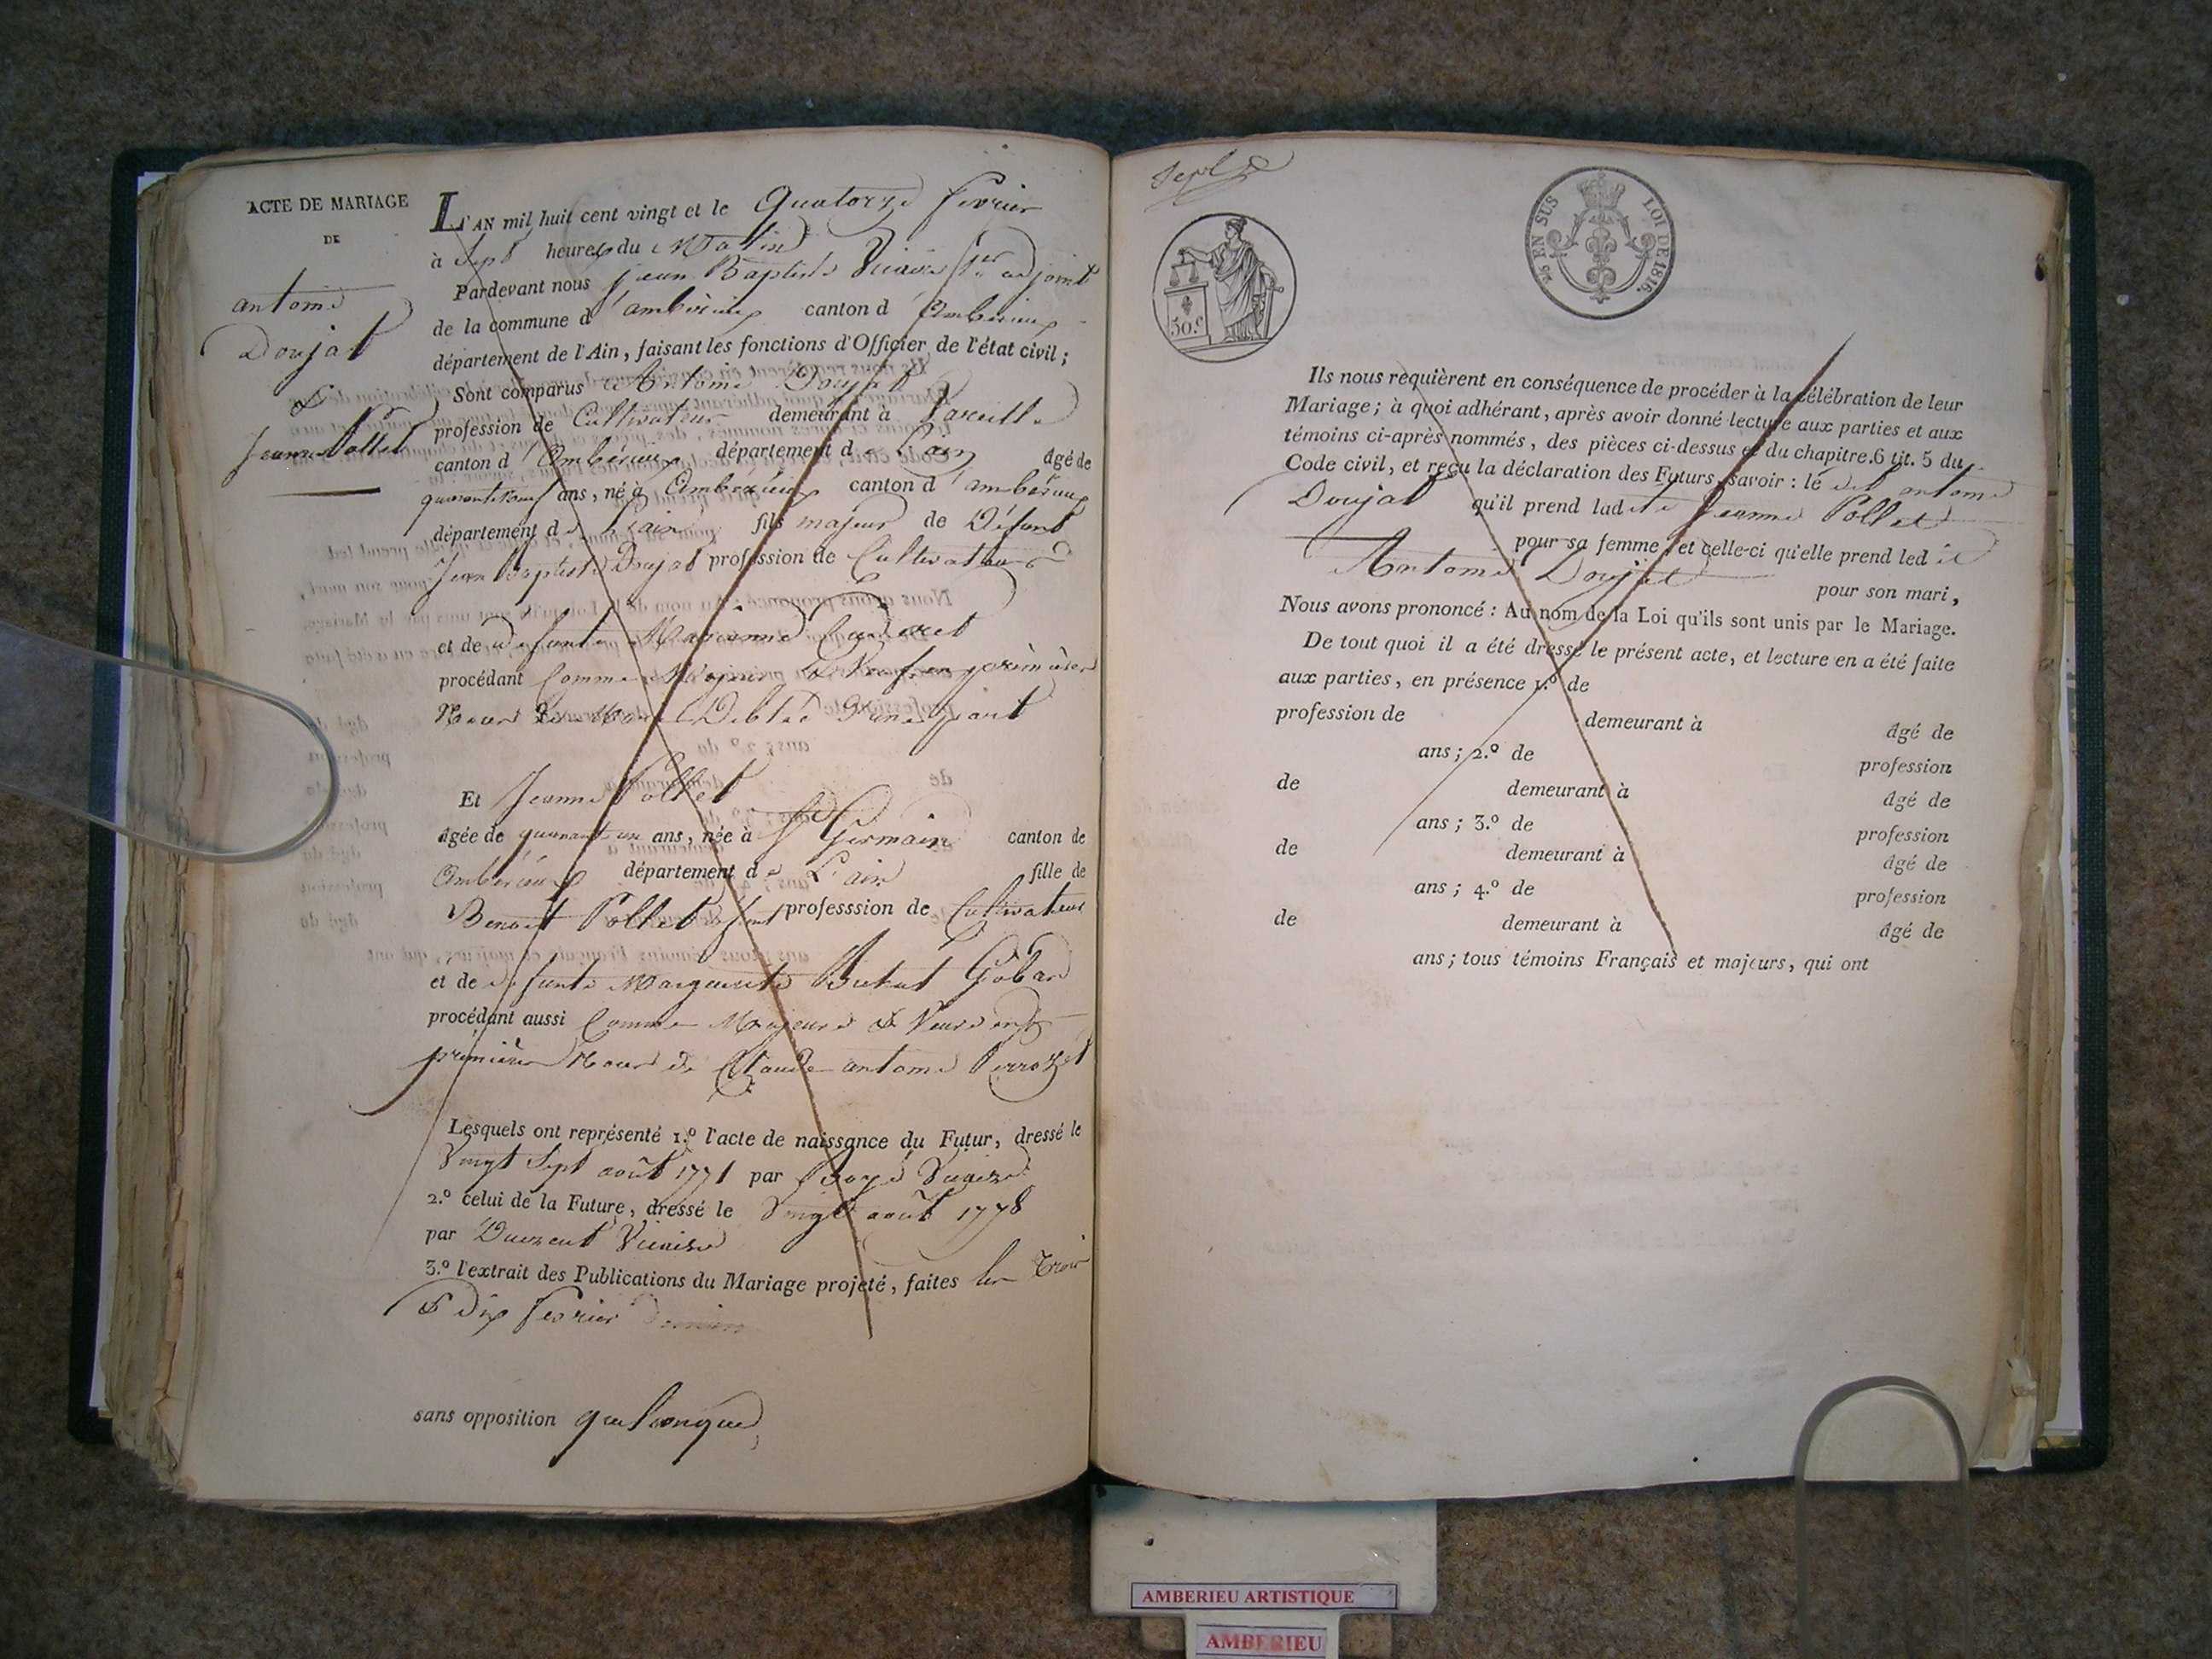 ACTE DE MARIAGE
DE
antoine
Doujat
&
Jeanne Pollet
L'AN mil huit cent vingt et le Quatorze fevrier
à Sept heures du Matin
Pardevant nous jean Baptiste 1er adjoint
de la commune d'ambérieux canton d'Ambérieux
département de l'Ain, faisant les fonctions d'Officier de l'état civil;
Sont comparus Antoine Doujat
profession de Cultivateur demeurant à Vareille
canton d'Ambérieux département de L'ain âgé de
ans, né à Ambérieux canton d'ambérieux
département de L'ain fils majeur de Défunt
Jean Baptiste Doujat profession de Cultivateur
et de defunte Marianne
procédant Comme Majeur & Veuf en première
Noces de
Et Jeanne Pollet
âgée de quarant un ans, née à St Germain canton de
Ambérieux département de L'ain fille de
Benoit Pollet défunt professsion de Cultivateur
et de defunte Marguerite
procédant aussi Comme Majeure & Veuve en
première Noces de Claude antoine
Lesquels ont représenté 1.º l'acte de naissance du Futur, dressé le
Vingt Sept août 1771 par
2.º celui de la Future, dressé le Vingt août 1778
par
3.º l'extrait des Publications du Mariage projeté, faites les Trois
& dix fevrier
sans opposition quelconque
Sept
30.c
25 EN SUS LOI DE 1816.
Ils nous requièrent en conséquence de procéder à la célébration de leur
Mariage; à quoi adhérant, après avoir donné lecture aux parties et aux
témoins ci-après nommés, des pièces ci-dessus et du chapitre.6 tit. 5 du
Code civil, et reçu la déclaration des Futurs, savoir: le dit antoine
Doujat qu'il prend ladite Jeanne Pollet
pour sa femme, et celle-ci qu'elle prend led it
Antoine Doujat pour son mari,
Nous avons prononcé: Au nom de la Loi qu'ils sont unis par le Mariage.
De tout quoi il a été dressé le présent acte, et lecture en a été faite
aux parties, en présence 1.º de
profession de demeurant à âgé de
ans; 2.º de profession
de demeurant à âgé de
ans; 3.º de profession
de demeurant à âgé de
ans; 4.º de profession
de demeurant à âgé de
ans; tous témoins Français et majeurs, qui ont
AMBERIEU ARTISTIQUE
AMBERIEU